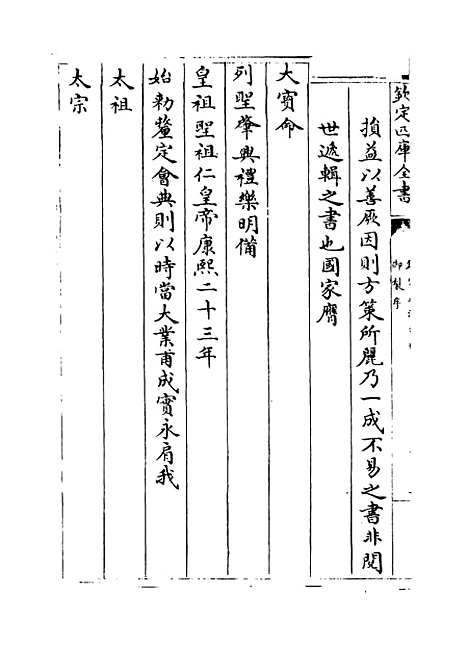 欽定四庫全書
御製序
損益以善厥因則方策所麗乃一成不易之書非閱
世遞輯之書也國家膺
大寶命
列聖肇興禮樂明備
皇祖聖祖仁皇帝康熙二十三年
始勅釐定會典則以時當大業甫成實永肩我
太祖
太宗